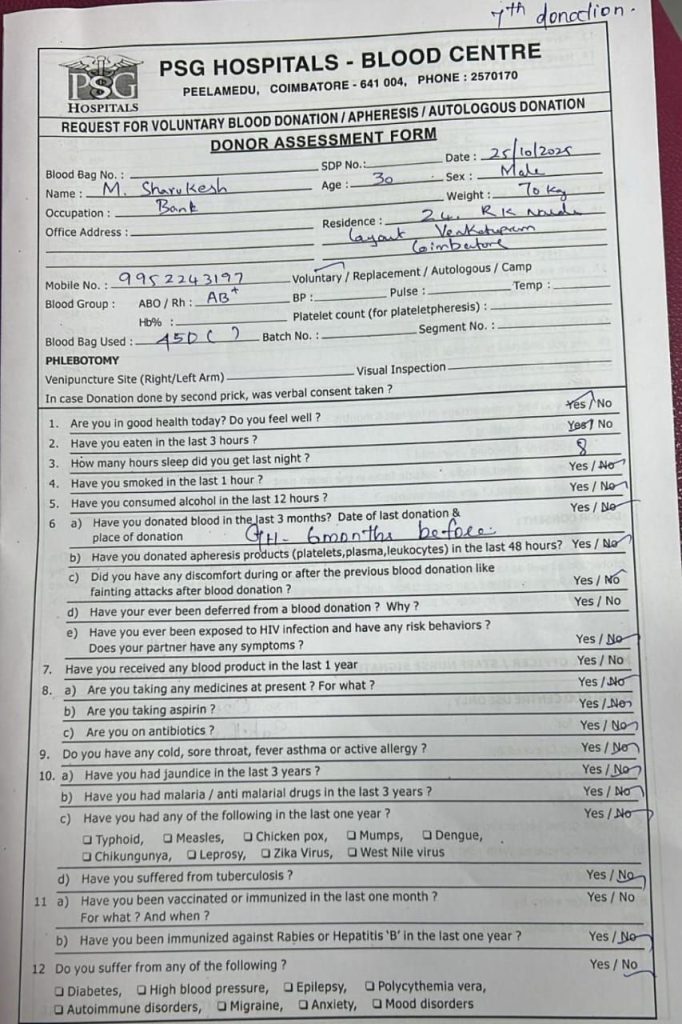 7th donation.
PSG HOSPITALS - BLOOD CENTRE
PSG
HOSPITALS
PEELAMEDU, COIMBATORE - 641 004, PHONE : 2570170
REQUEST FOR VOLUNTARY BLOOD DONATION / APHERESIS / AUTOLOGOUS DONATION
DONOR ASSESSMENT FORM
Blood Bag No. : SDP No.: Date : 25/10/2025
Name : M. Sharukesh Age : 30 Sex : Male
Occupation : Bank Weight : 70 kg
Office Address : Residence : 24, R K Naidu
Layout Venkatapuram
Coimbatore
Mobile No. : 9952243197 Voluntary / Replacement / Autologous / Camp
Blood Group : ABO / Rh : AB+ BP : Pulse : Temp :
Hb% : Platelet count (for plateletpheresis) :
Blood Bag Used : 450 ( ) Batch No. : Segment No. :
PHLEBOTOMY
Venipuncture Site (Right/Left Arm) Visual Inspection
In case Donation done by second prick, was verbal consent taken ?
1. Are you in good health today? Do you feel well ? Yes / No
2. Have you eaten in the last 3 hours ? Yes / No
3. How many hours sleep did you get last night ? 8
4. Have you smoked in the last 1 hour ? Yes / No
5. Have you consumed alcohol in the last 12 hours ? Yes / No
6 a) Have you donated blood in the last 3 months? Date of last donation & Yes / No
place of donation GH - 6months before.
b) Have you donated apheresis products (platelets,plasma,leukocytes) in the last 48 hours? Yes / No
c) Did you have any discomfort during or after the previous blood donation like
fainting attacks after blood donation ? Yes / No
d) Have your ever been deferred from a blood donation ? Why ? Yes / No
e) Have you ever been exposed to HIV infection and have any risk behaviors ?
Does your partner have any symptoms ? Yes / No
7. Have you received any blood product in the last 1 year Yes / No
8. a) Are you taking any medicines at present ? For what ? Yes / No
b) Are you taking aspirin ? Yes / No
c) Are you on antibiotics ? Yes / No
9. Do you have any cold, sore throat, fever asthma or active allergy ? Yes / No
10. a) Have you had jaundice in the last 3 years ? Yes / No
b) Have you had malaria / anti malarial drugs in the last 3 years ? Yes / No
c) Have you had any of the following in the last one year ? Yes / No
❑ Typhoid, ❑ Measles, ❑ Chicken pox, ❑ Mumps, ❑ Dengue,
❑ Chikungunya, ❑ Leprosy, ❑ Zika Virus, ❑ West Nile virus
d) Have you suffered from tuberculosis ? Yes / No
11 a) Have you been vaccinated or immunized in the last one month ? Yes / No
For what ? And when ?
b) Have you been immunized against Rabies or Hepatitis 'B' in the last one year ? Yes / No
12 Do you suffer from any of the following ? Yes / No
❑ Diabetes, ❑ High blood pressure, ❑ Epilepsy, ❑ Polycythemia vera,
❑ Autoimmune disorders, ❑ Migraine, ❑ Anxiety, ❑ Mood disorders